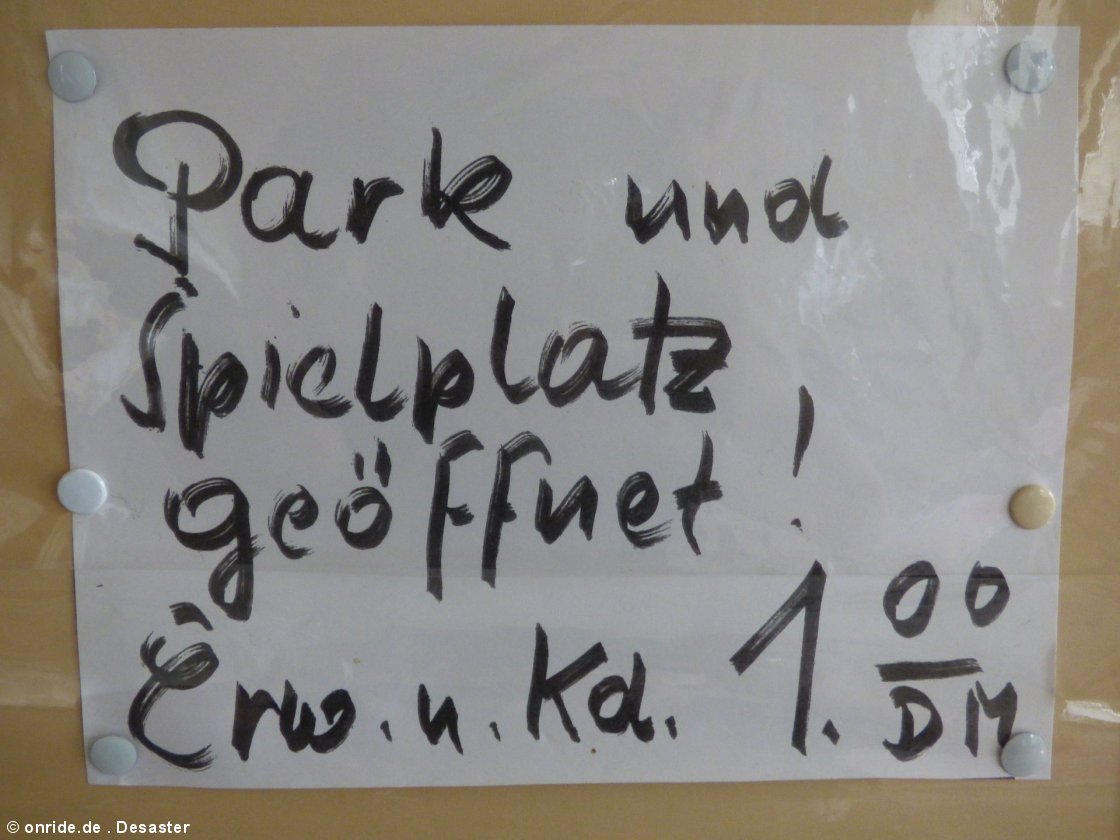 Park und
Spielplatz
geöffnet!
Erw. u. Kd. 1.00 DM
© onride.de . Desaster